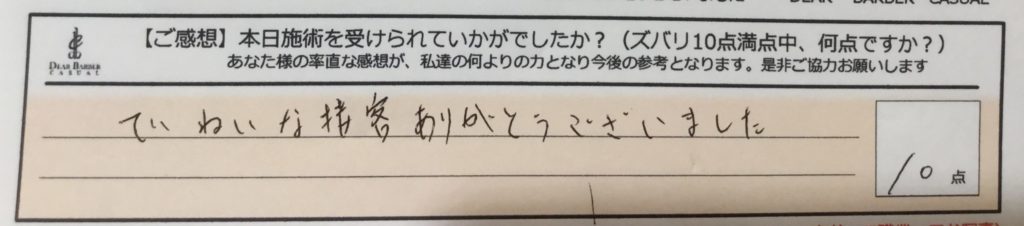 DEAR BARBER CASUAL
DEAR BARBER
CASUAL
【ご感想】本日施術を受けられていかがでしたか？（ズバリ10点満点中、何点ですか？）
あなた様の率直な感想が、私達の何よりの力となり今後の参考となります。是非ご協力お願いします
ていねいな接客ありがとうございました
10点